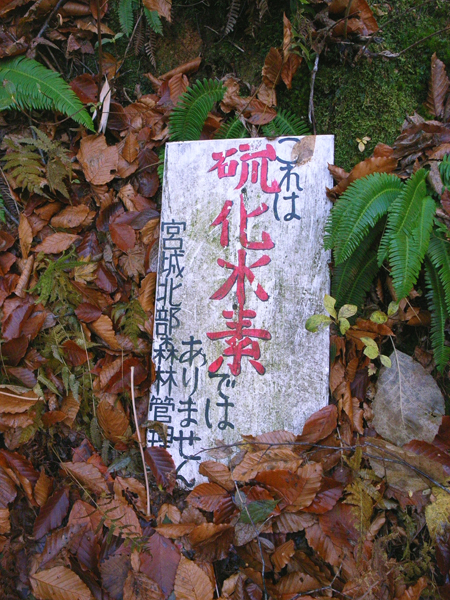 これは
硫化水素
では
ありません
宮城北部森林管理